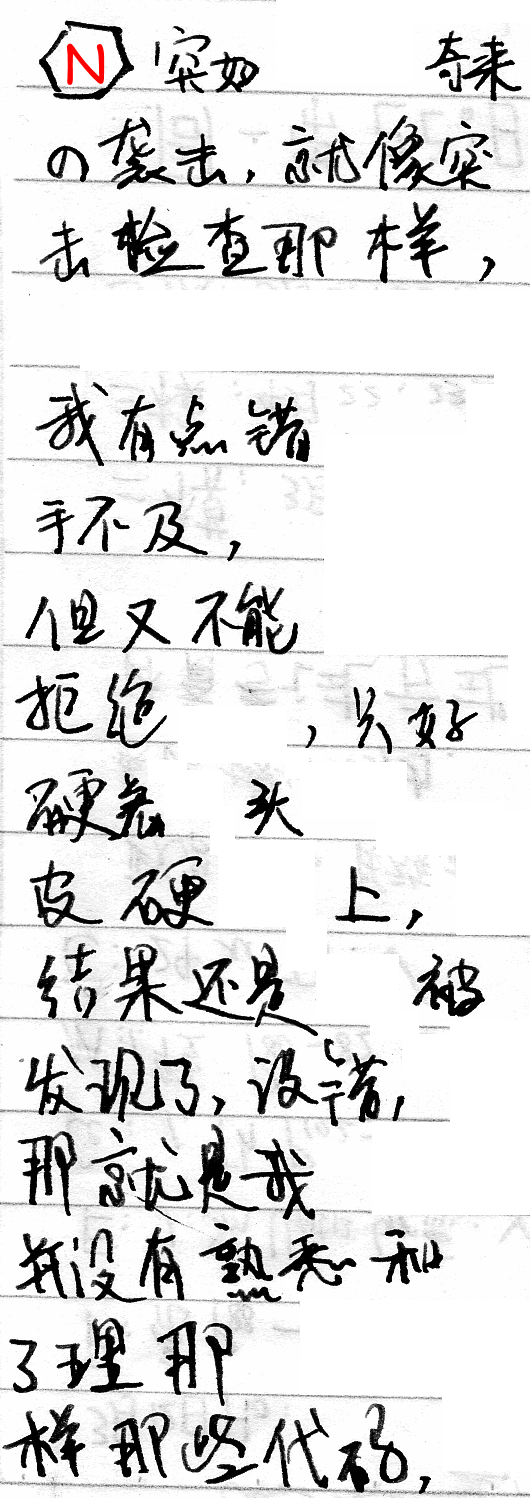 N 突如 奇来
の袭击，就像突
击检查那样，
我有点错
手不及，
但又不能
拒绝，只好
硬着头
皮硬上，
结果还是被
发现了，没错，
那就是我
并没有熟悉和
了理那
样那些代码，